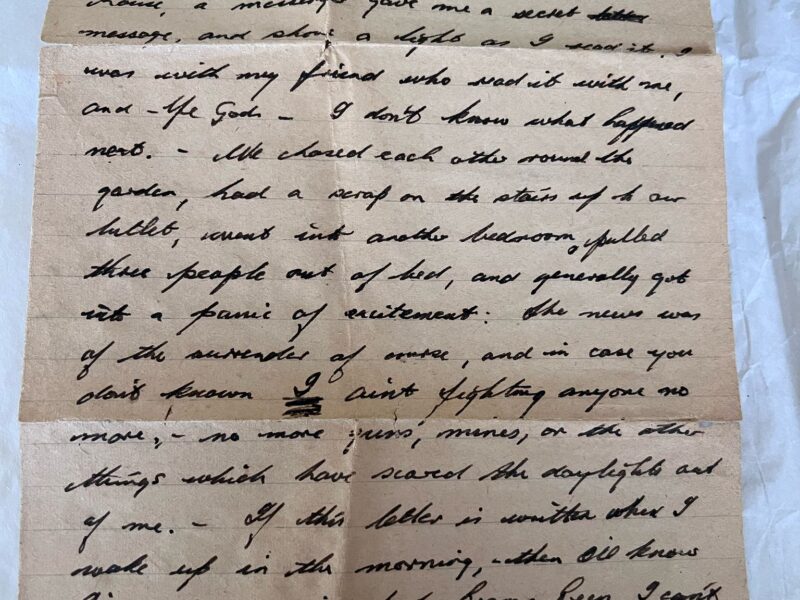 house, a messenger gave me a secret letter
message, and shone a light as I read it. I
was with my friend who read it with me,
and - Ye Gods - I don't know what happened
next. - We chased each other round the
garden, had a scrap on the stairs up to our
billet, went into another bedroom, pulled
three people out of bed, and generally got
into a panic of excitement: The news was
of the surrender of course, and in case you
don't known I aint fighting anyone no
more, - no more guns, mines, or the other
things which have scared the daylights out
of me. - If this letter is written when I
wake up in the morning, - then Ill know
been I can't